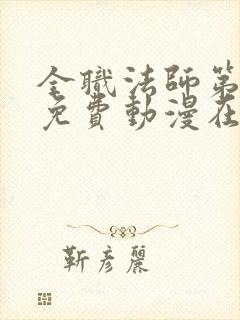 全職法師第
免費動漫在
靳彥麗